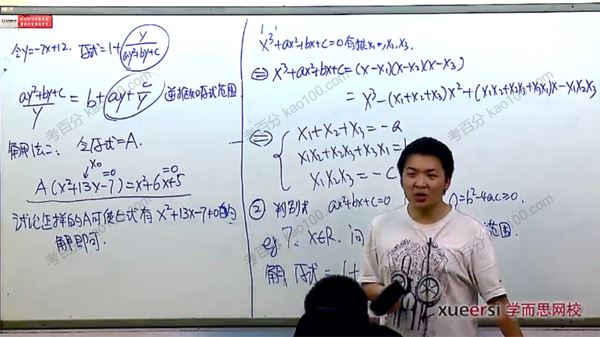 令y=-7x+12. 原式=1+y/(ay²+by+c)
(ay²+by+c)/y = b+ay+c/y 逆推知原式范围
解法二: 令原式=A.
x₀
A(x²+13x-7)=x²+6x+5
=0 =0
讨论怎样的A可使上式有x²+13x-7≠0的
解即可.
x³+ax²+bx+c=0有根x₁,x₂,x₃.
⇔ x³+ax²+bx+c=(x-x₁)(x-x₂)(x-x₃)
=x³-(x₁+x₂+x₃)x²+(x₁x₂+x₂x₃+x₃x₁)x-x₁x₂x₃
⇔ { x₁+x₂+x₃=-a
x₁x₂+x₂x₃+x₃x₁=
x₁x₂x₃=-c
② 判别式 ax²+bx+c=0 =b²-4ac≥0.
eg 7. x∈R. 问 范围.
解 原式=1+
考百分 kao100.com
考百分 kao100.com
考百分 kao100.com
考百分 kao100.com
xueersi 学而思网校